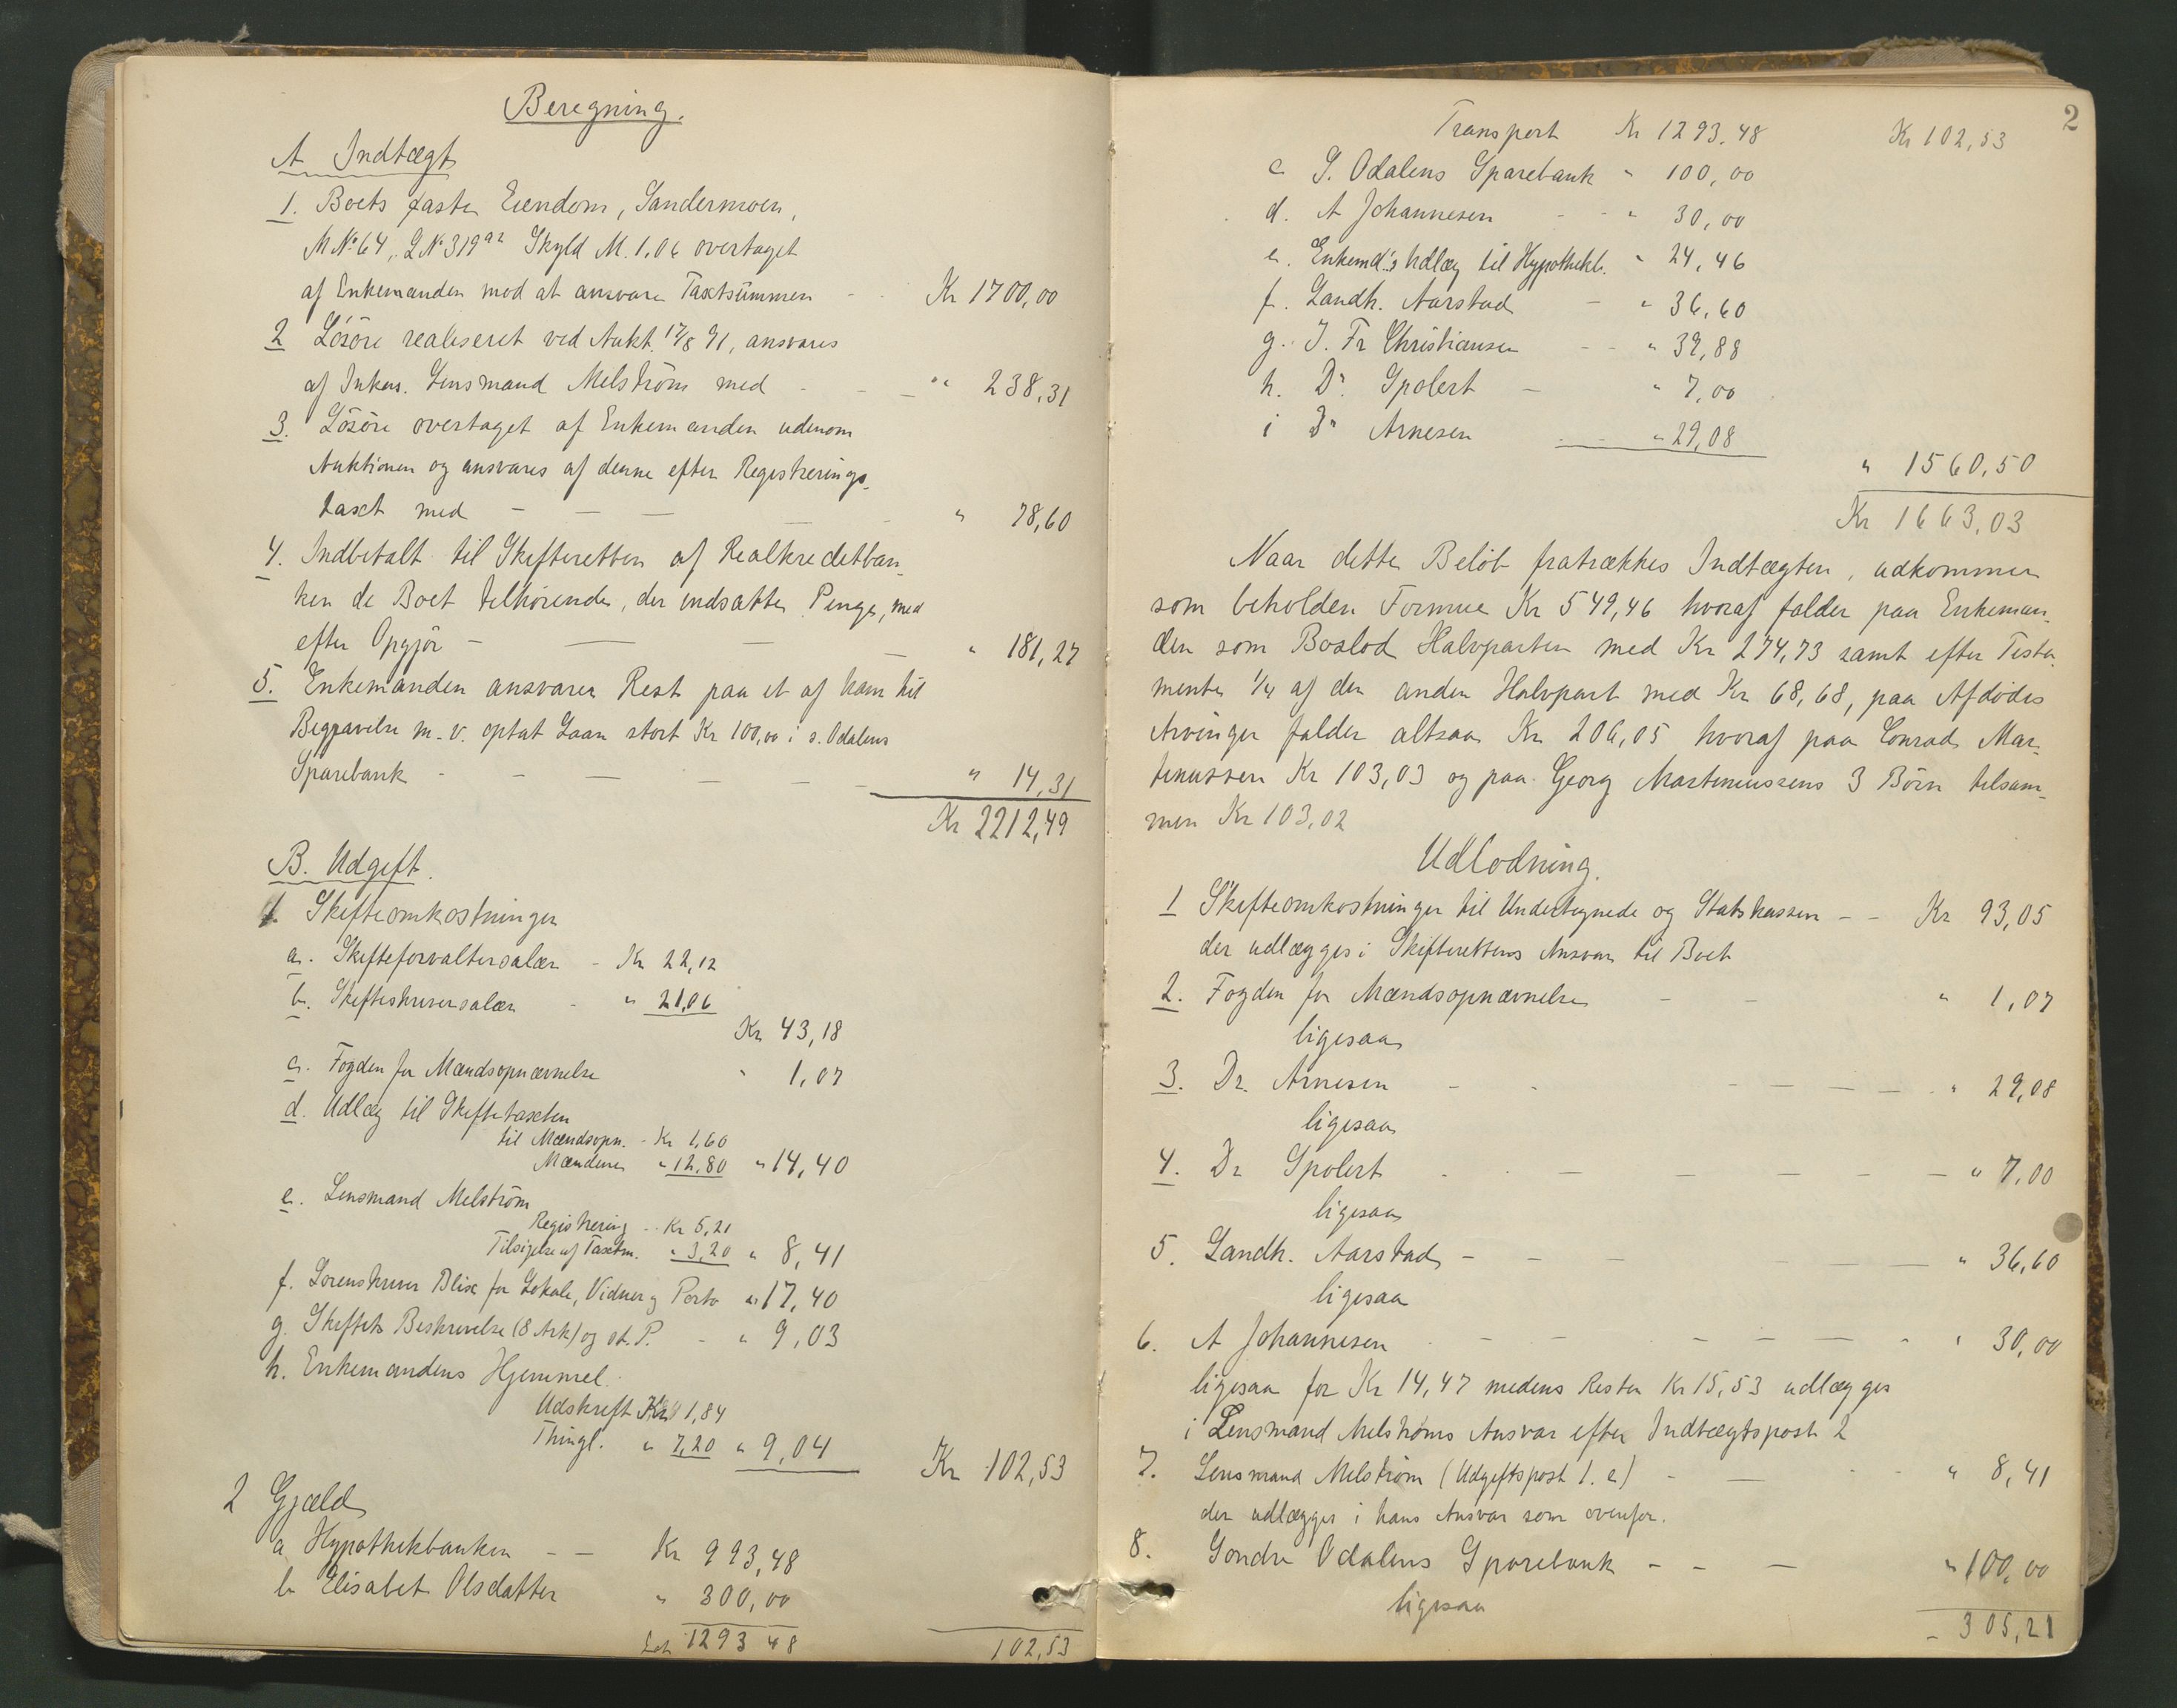 Beregning.
A Indtægt
1. Boets faste Eiendom, Sandermoen,
M No 64, L No 319 a2 Skyld M. 1.06 overtaget
af Enkemanden mod at ansvare Taxtsummen - - Kr 1700,00
2 Løsøre realiseret ved Aukt. 17/8 91, ansvares
af Inkas. Lensmand Melström med - - - " 238,31
3. Løsøre overtaget af Enkemanden udenom
Auktionen og ansvares af denne efter Registrerings-
taxt med - - - - - " 78,60
4. Indbetalt til Skifteretten af Realkreditban-
ken de Boet tilhørende, der indsatte Penge, med
efter Opgjør - - - - " 181,27
5. Enkemanden ansvarer Rest paa et af ham til
Begravelse m. v. optat Laan stort Kr 100,00 i s. Odalens
Sparebank - - - - - - " 14,31
Kr 2212,49
B. Udgift.
1. Skifteomkostninger
a. Skifteforvaltersalær - Kr 22,12
b. Skifteskriversalær - " 21,06
Kr 43,18
c. Fogden for Mændsopnævnelse " 1,07
d. Udlæg til Skiftetaxten
til Mændsopn. - Kr 1,60
Mændene " 12,80 " 14,40
e. Lensmand Melström
Registrering - Kr 5,21
Tilsigelse af Taxtm. " 3,20 " 8,41
f. Sorenskriver Blix for Lokale, Vidner og Porto " 17,40
g. Skiftets Beskrivelse (8 Ark) og st. P. - " 9,03
h. Enkemandens Hjemmel.
Udskrift Kr 1,84
Thingl. " 7,20 " 9,04 Kr 102,53
2 Gjæld
a Hypothekbanken - - Kr 993,48
b Elisabet Olsdatter " 300,00
Lat 1293 48 102,53
2
Transport Kr 1293,48 Kr 102,53
c S. Odalens Sparebank " 100,00
d. A Johannesen - - " 30,00
e. Enkemd's Udlæg til Hypothekb. " 24,46
f. Landh. Aarstad - " 36,60
g. J. Fr Christiansen - - " 39,88
h. Dr. Spolert - " 7,00
i Dr Arnesen - - " 29,08
" 1560,50
Kr 1663,03
Naar dette Beløb fratrækkes Indtægten, udkommer
som beholden Formue Kr 549,46 hvoraf falder paa Enkeman-
den som Boslod Halvparten med Kr 274,73 samt efter Testa-
mente 1/4 af den anden Halvpart med Kr 68,68, paa Afdødes
Arvinger falder altsaa Kr 206,05 hvoraf paa Conrad Mar-
tinussen Kr 103,03 og paa Georg Martinussens 3 Børn tilsam-
men Kr 103,02
Udlodning.
1 Skifteomkostninger til Undertegnede og Statskassen - - Kr 93,05
der udlægges i Skifterettens Ansvar til Boet
2. Fogden for Mændsopnævnelse - - " 1,07
ligesaa
3. Dr. Arnesen - - - - - - " 29,08
ligesaa
4. Dr Spolert - - - - - - " 7,00
ligesaa
5. Landh. Aarstad - - - - - - " 36,60
ligesaa
6. A Johannesen - - - - - - " 30,00
ligesaa for Kr 14,47 medens Resten Kr 15,53 udlægges
i Lensmand Melströms Ansvar efter Indtægtspost 2
7. Lensmand Melström (Udgiftspost 1. e) - - - " 8,41
der udlægges i hans Ansvar som ovenfor.
8. Søndre Odalens Sparebank - - - " 100,00
ligesaa
- 305,21